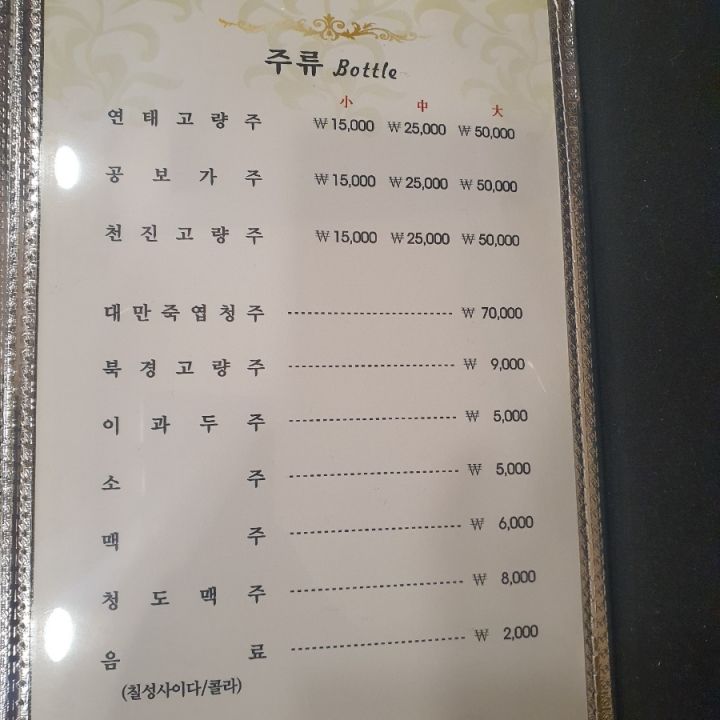 주류 Bottle
小 中 大
연태고량주 ₩15,000 ₩25,000 ₩50,000
공보가주 ₩15,000 ₩25,000 ₩50,000
천진고량주 ₩15,000 ₩25,000 ₩50,000
대만죽엽청주 ₩70,000
북경고량주 ₩9,000
이과두주 ₩5,000
소주 ₩5,000
맥주 ₩6,000
청도맥주 ₩8,000
음료 ₩2,000
(칠성사이다/콜라)